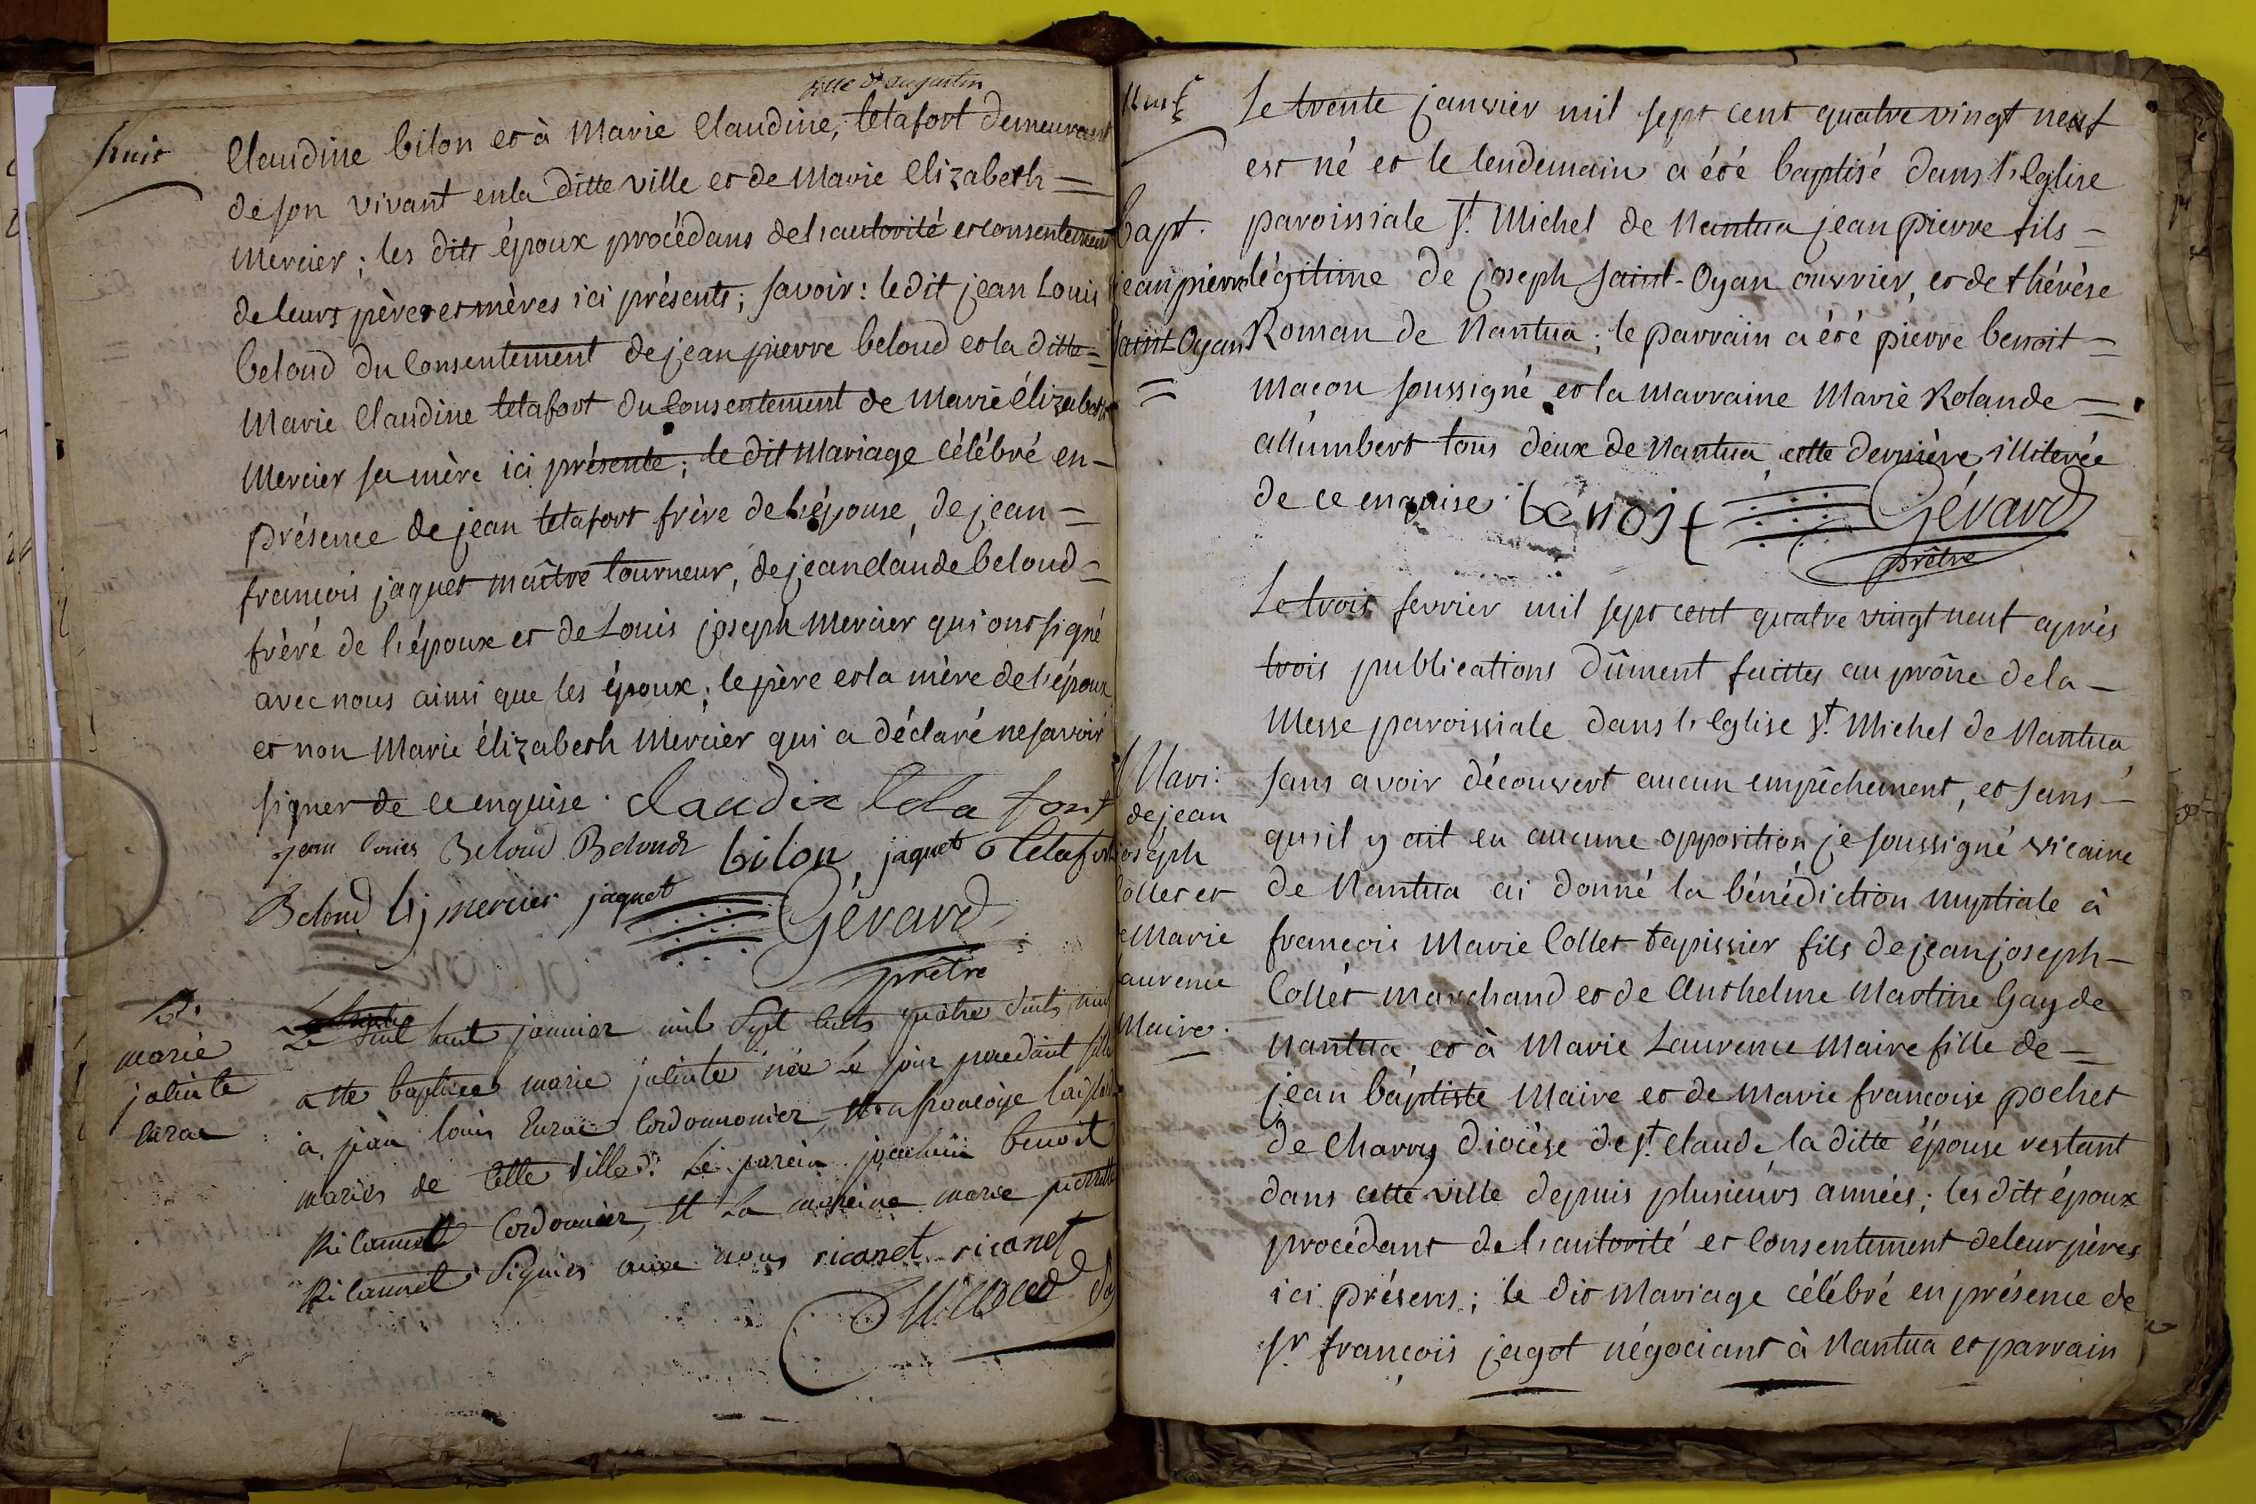 huit
fille d'augustin
Claudine bilon et à Marie Claudine, tetafort demeurant
de son vivant en la ditte ville et de Marie Elizabeth =
Mercier ; les dits époux procédans de l'autorité et consentement
de leurs pères et mères ici présents ; savoir : le dit jean Louis
beloud du consentement de jean pierre beloud et la ditte =
Marie Claudine tetafort du consentement de Marie élizabeth
Mercier sa mère ici présente ; le dit Mariage célébré en -
présence de jean tetafort frère de l'épouse, de jean =
françois jaquet maître tourneur, de jean claude beloud =
frère de l'époux et de Louis joseph Mercier qui ont signé
avec nous ainsi que les époux ; le père et la mère de l'époux
et non Marie élizabeth Mercier qui a déclaré ne savoir
signer de ce enquise . claudix teta fort
jean louies Beloud Beloud bilon, jaquet tetafort
Beloud lj mercier jaquet Gérard
prêtre
B.
marie
jalinte
Eurac
Le huit janvier mil sept cents quatre vints neuf
a été baptisée marie jalinte née le jour précédant fille
à jean louis Eurac Cordonnonier, et a françoise
mariés de cette ville : Le parein joachim benoit
Ricannet Cordonnier, et La mareine marie pierrette
Ricannet signés avec nous ricanet ricanet
neuf
Le trente janvier mil sept cent quatre vingt neuf
est né et le lendemain a été baptisé dans l'Eglise
Bapt.
paroissiale St. Michel de Nantua jean pierre fils =
jean pierre
légitime de joseph Saint-Oyan ouvrier, et de thérèse
Saint-Oyan
Roman de Nantua ; le parrain a été pierre benoit =
macon soussigné et la marraine Marie Rolande =
allumbert tous deux de Nantua, cette dernière, illiterée
de ce enquise . benoit Gérard
prêtre
Le trois fevrier mil sept cent quatre vingt neuf après
trois publications dûment faittes au prône de la -
Messe paroissiale dans l'Eglise St. Michel de Nantua
Mari :
de jean
joseph
Collet et
de Marie
Laurence
Maire .
sans avoir découvert aucun empêchement, et sans -
qu'il y ait eu aucune opposition je soussigné vicaire
de Nantua ai donné la bénédiction nuptiale à
francois Marie Collet tapissier fils de jean joseph -
Collet marchand et de Anthelme Martine Gay de
Nantua et à Marie Laurence Maire fille de =
jean baptiste Maire et de Marie francoise pochet
de Charry diocèse de St. Claude la ditte épouse restant
dans cette ville depuis plusieurs années ; les dits époux
procédant de l'autorité et consentement de leur pères
ici présens ; le dit Mariage célébré en présence de
Sr. françois jagot négociant à Nantua et parrain